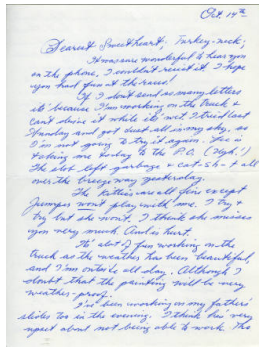 Oct. 14th
Dearest Sweetheart, Turkey-neck,
It was wonderful to hear you
on the phone, I couldn't resist it. I hope
you had fun at the races!
If I don't send as many letters
it's because I'm working on the truck &
can't drive it while it's wet. I tried last
Sunday and got dust all in my
I'm not going to try it again.
taking me today to the P.O.
left garbage & all
over the breezeway yesterday.
The kitties are all fine except
Jumper won't play with me. I try &
try but she won't. I think she misses
you very much. And is hurt.
It's a lot of fun working on the
truck as the weather has been beautiful
and I'm outside all day. Although I
doubt that the painting will be very
weather-proof.
I've been working on my father's
slides too in the evening. I think he's very
upset about not being able to work. The